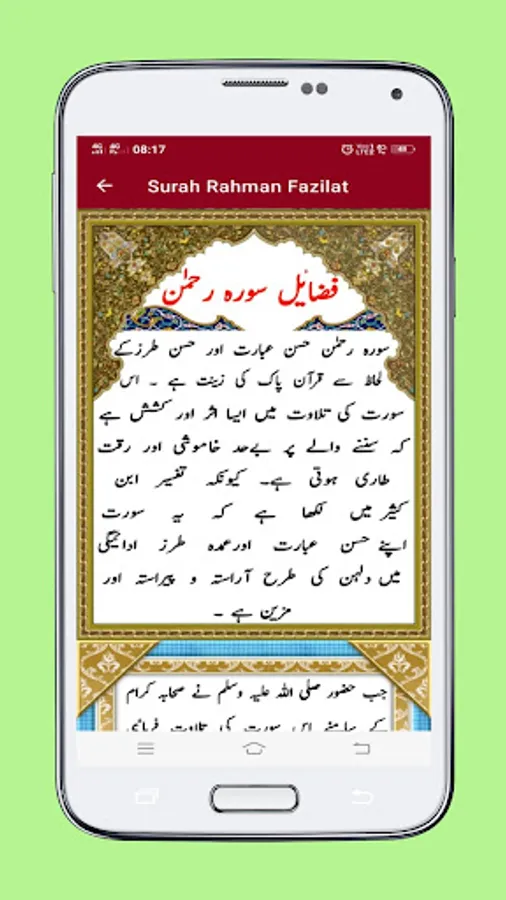 08:17
Surah Rahman Fazilat
فضایٔل سورہ رحمٰن
سورہ رحمٰن حسن عبارت اور حسن طرزکے
لحاظ سے قرآن پاک کی زینت ہے ۔ اس
سورت کی تلاوت میں ایسا اثر اور کشش ہے
کہ سننے والے پر بےحد خاموشی اور رقت
طاری ہوتی ہے۔ کیونکہ تفسیر ابن
کثیر میں لکھا ہے کہ یہ سورت
اپنے حسن عبارت اورعمدہ طرز ادائیگی
میں دلہن کی طرح آراستہ و پیراستہ اور
مزین ہے ۔
جب حضور صلی اللہ علیہ وسلم نے صحابہ کرام
کے سامنے اس سورت کی تلاوت فرمائی